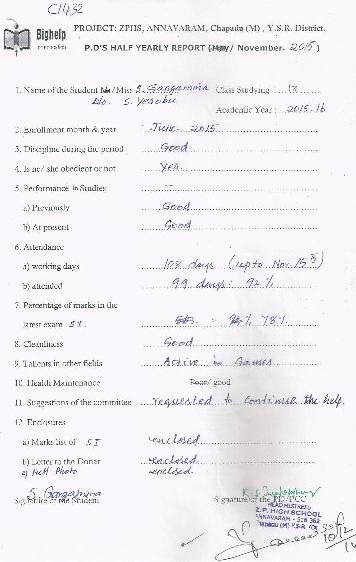 C/432
Bighelp
for education
PROJECT: ZPHS, ANNAVARAM, Chapadu (M), Y.S.R. District.
P.D'S HALF YEARLY REPORT (May/ November- 2015)
1. Name of the Student Mr/Miss S. Gangamma Class Studying: IX
D/o. S. Yesobu Academic Year: 2015-16
2. Enrollment month & year June- 2015
3. Discipline during the period Good
4. Is he/ she obedient or not Yes
5. Performance in Studies
a) Previously Good
b) At present Good
6. Attendance
a) working days 108 days (upto Nov. 15th)
b) attended 99 days: 92%
7. Percentage of marks in the
latest exam S1. = 78%
8. Cleanliness Good
9. Talents in other fields Active in Games
10. Health Maintenance Poor/ good
11. Suggestions of the committee requested to continue the help.
12. Enclosures
a) Marks list of SI enclosed
b) Letter to the Donor enclosed
c) Photo enclosed
S. Gangamma
Signature of the Student Signature of the PD/PCC
HEADMISTRESS
Z.P. HIGH SCHOOL
ANNAVARAM - 516 362
10/12